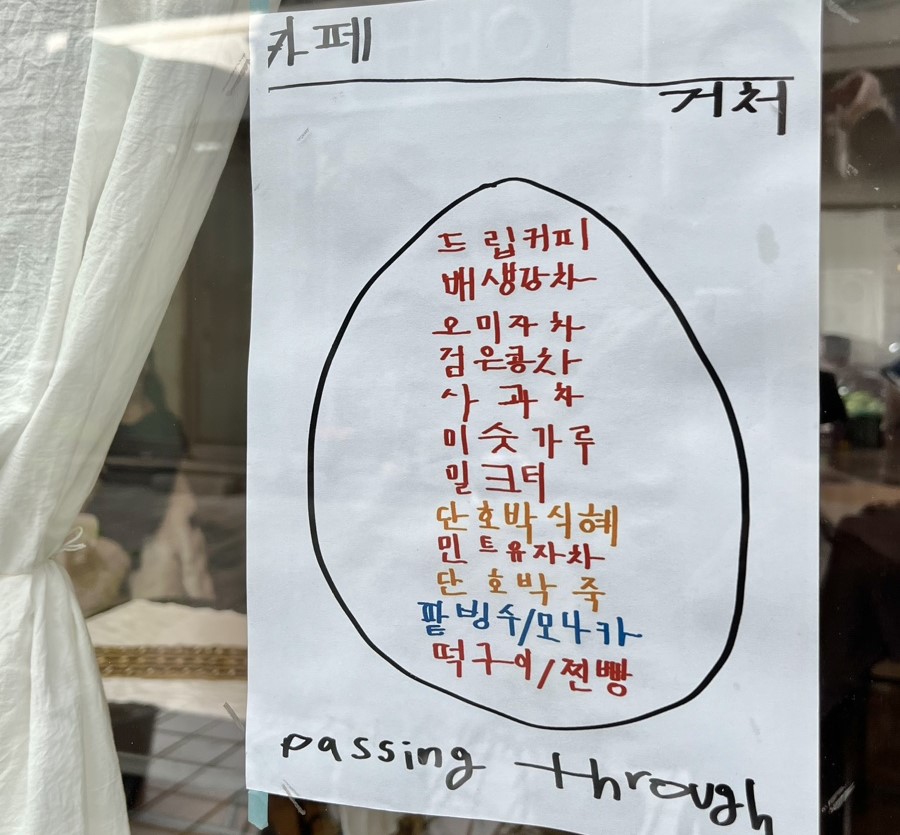 카페
거처
드립커피
배생강차
오미자차
검은콩차
사과차
미숫가루
밀크티
단호박식혜
민트유자차
단호박죽
팥빙수/모나카
떡구이/찐빵
passing through